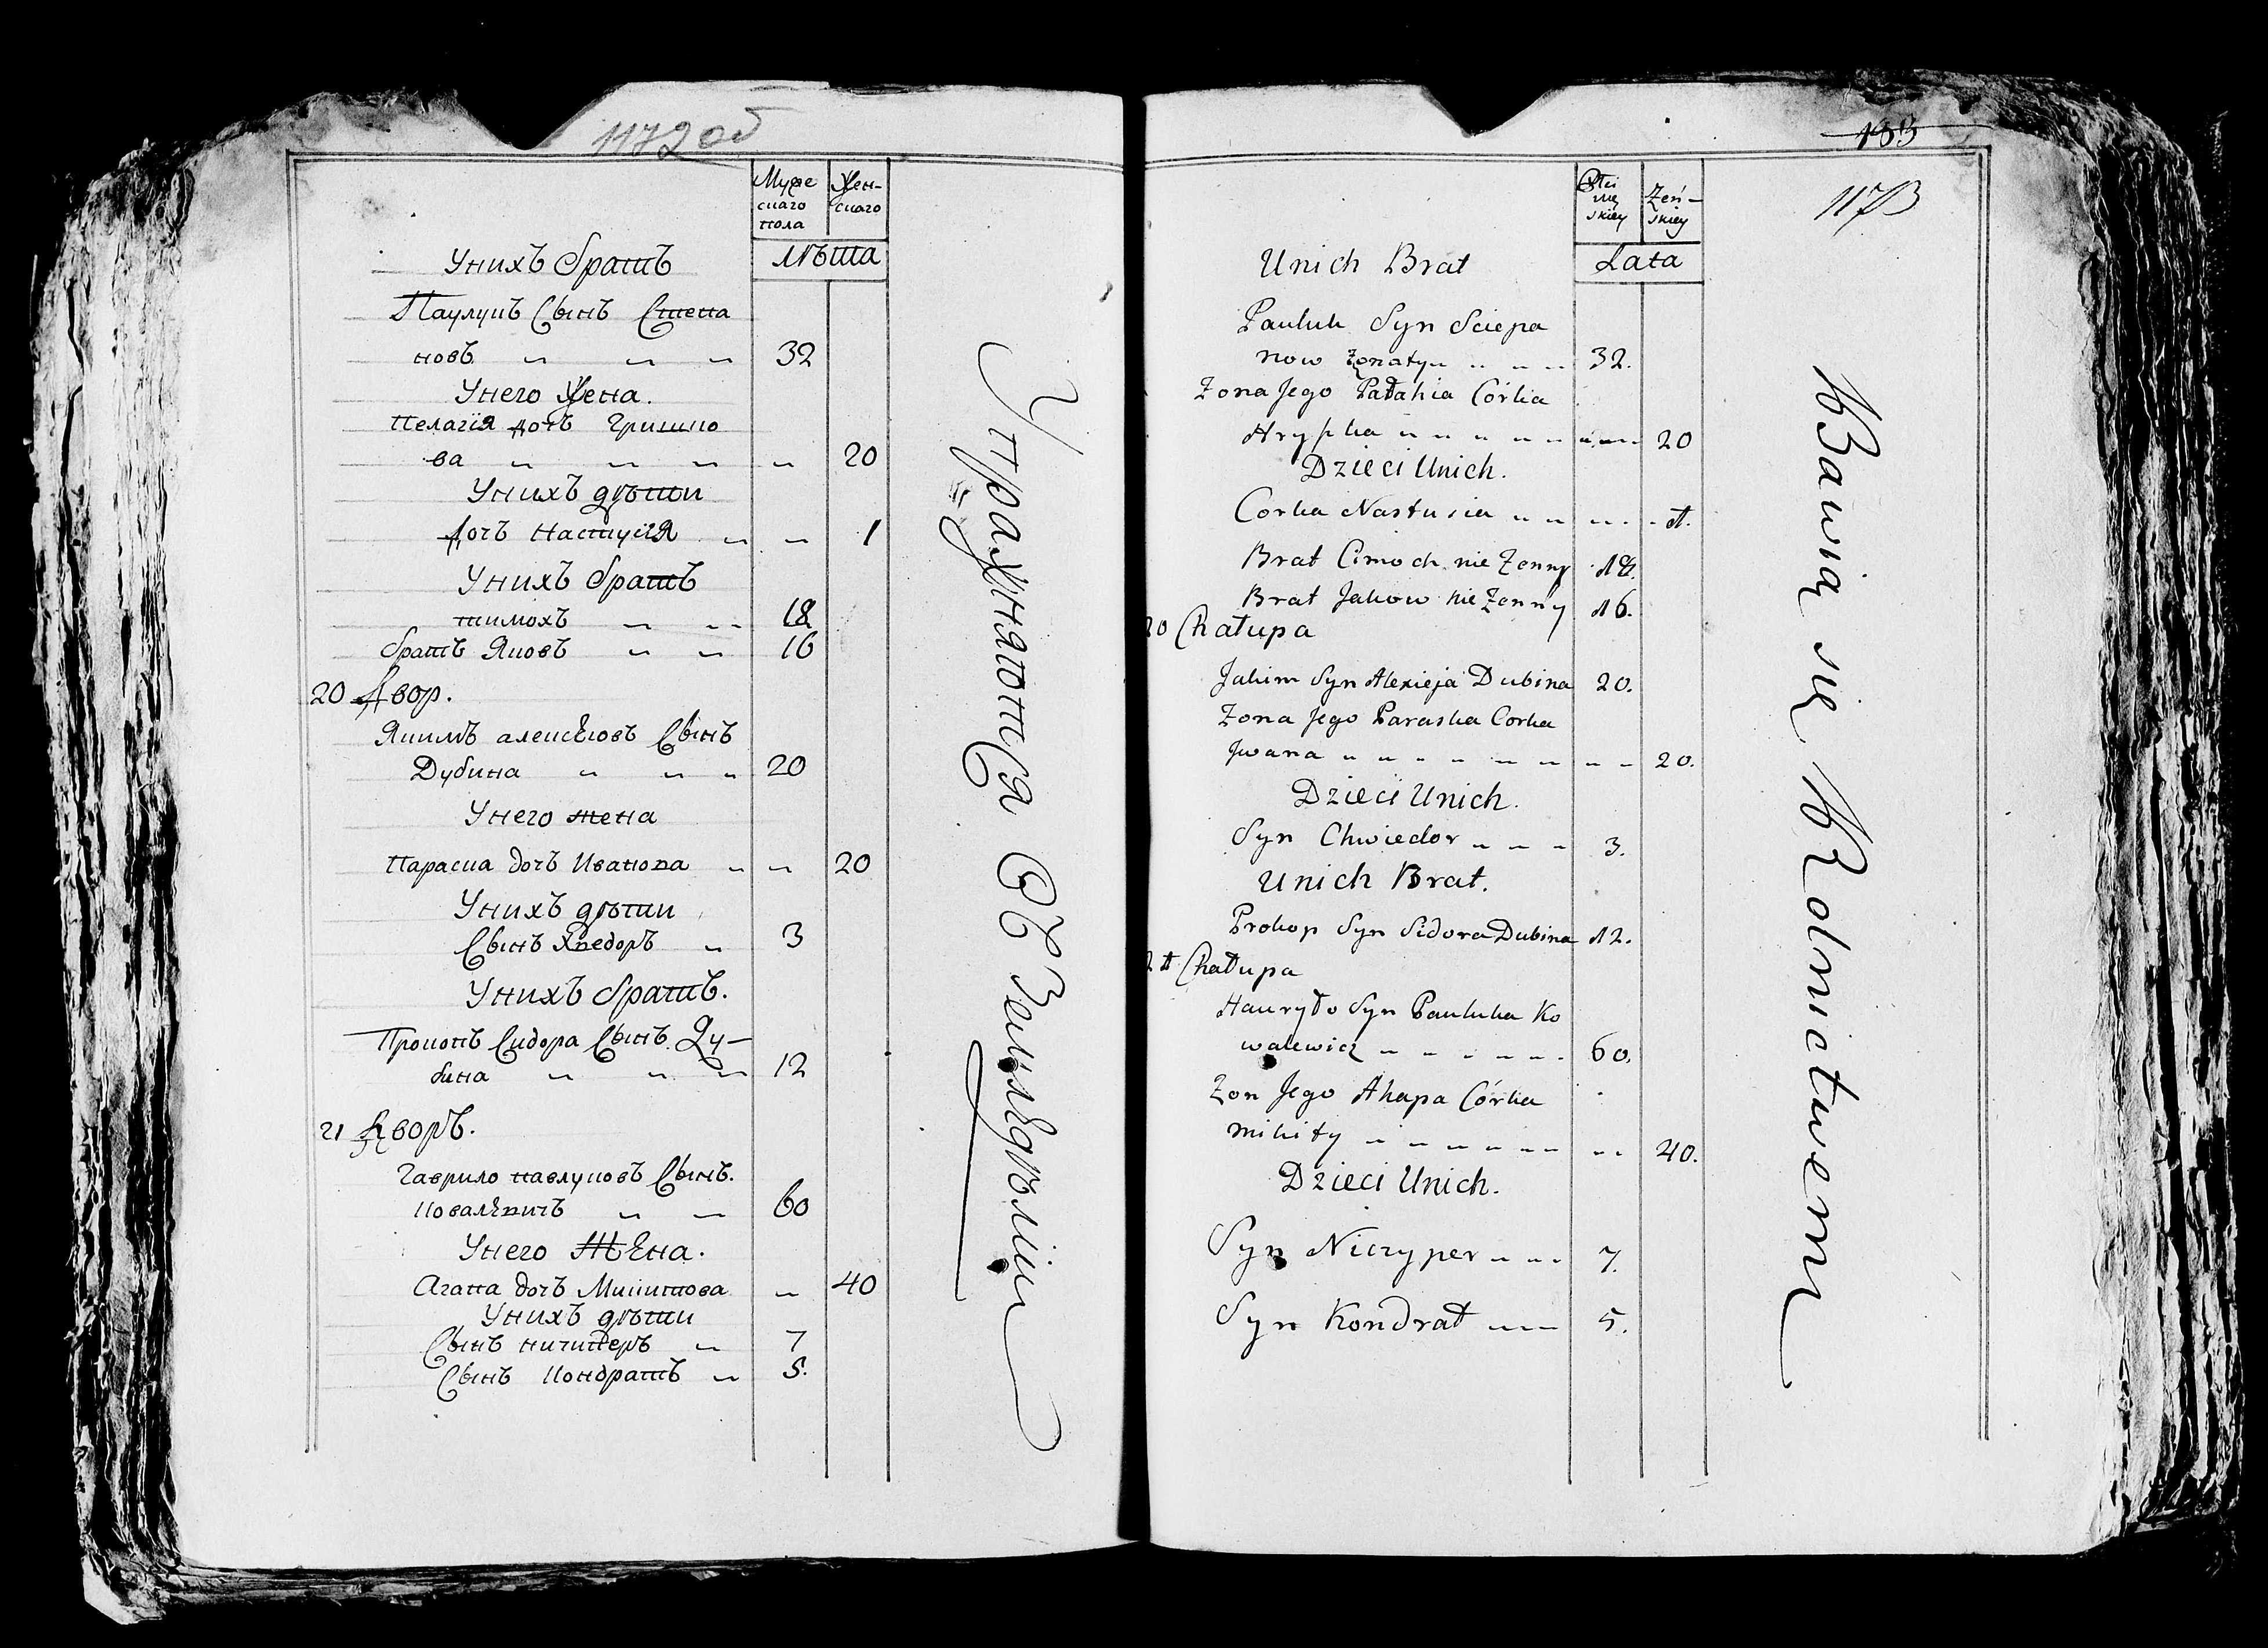 1172 об
Муже
скаго
пола
Жен-
скаго
Лѣта
Унихъ братъ
Паулукъ Сынъ Степа
новъ " " " 32
Унего Жена.
Пелагія дочъ Гришко
ва " " " " 20
Унихъ дѣти
Дочъ Настусія " " 1
Унихъ братъ
тимохъ " " 18
братъ Яковъ " " 16
20 Двор.
Якимъ алексѣювъ Сынъ
Дубина " " " 20
Унего жена
Параска дочъ Иванова " " 20
Унихъ дѣти
Сынъ Хведоръ " 3
Унихъ братъ.
Прокопъ Сидора Сынъ Ду-
бина " " " 12
21 Дворъ.
Гаврило павлуковъ Сынъ.
Ковалевичъ " " 60
Унего Жена.
Агапа дочъ Микитова " 40
Унихъ дѣти
Сынъ ничиперъ " 7
Сынъ Кондратъ " 5.
Упражняются Въ Земледѣліи
133
1173
Płci
mę
skiey
Żeń-
skiey
Lata
Unich Brat
Pauluk Syn Sciepa
now żonaty " " " " 32.
Zona Jego Pałahia Córka
Hryszka " " " " " " " " 20
Dzieci Unich.
Corka Nastusia " " " " " 1.
Brat Cimoch nie Zenny 18.
Brat Jakow nie Zenny 16.
20 Chałupa
Jakim Syn Alexieja Dubina 20.
Zona Jego Paraska Corka
Jwana " " " " " " " " 20.
Dzieci Unich.
Syn Chwiedor " " " 3.
Unich Brat.
Prokop Syn Sidora Dubina 12.
21 Chałupa
Hauryło Syn Pauluka Ko
walewicz " " " " " " 60.
Zon Jego Ahapa Córka
mikity " " " " " " " 40.
Dzieci Unich.
Syn Niczyper " " " 7.
Syn Kondrat " " " 5.
Bawią się Rolnictwem